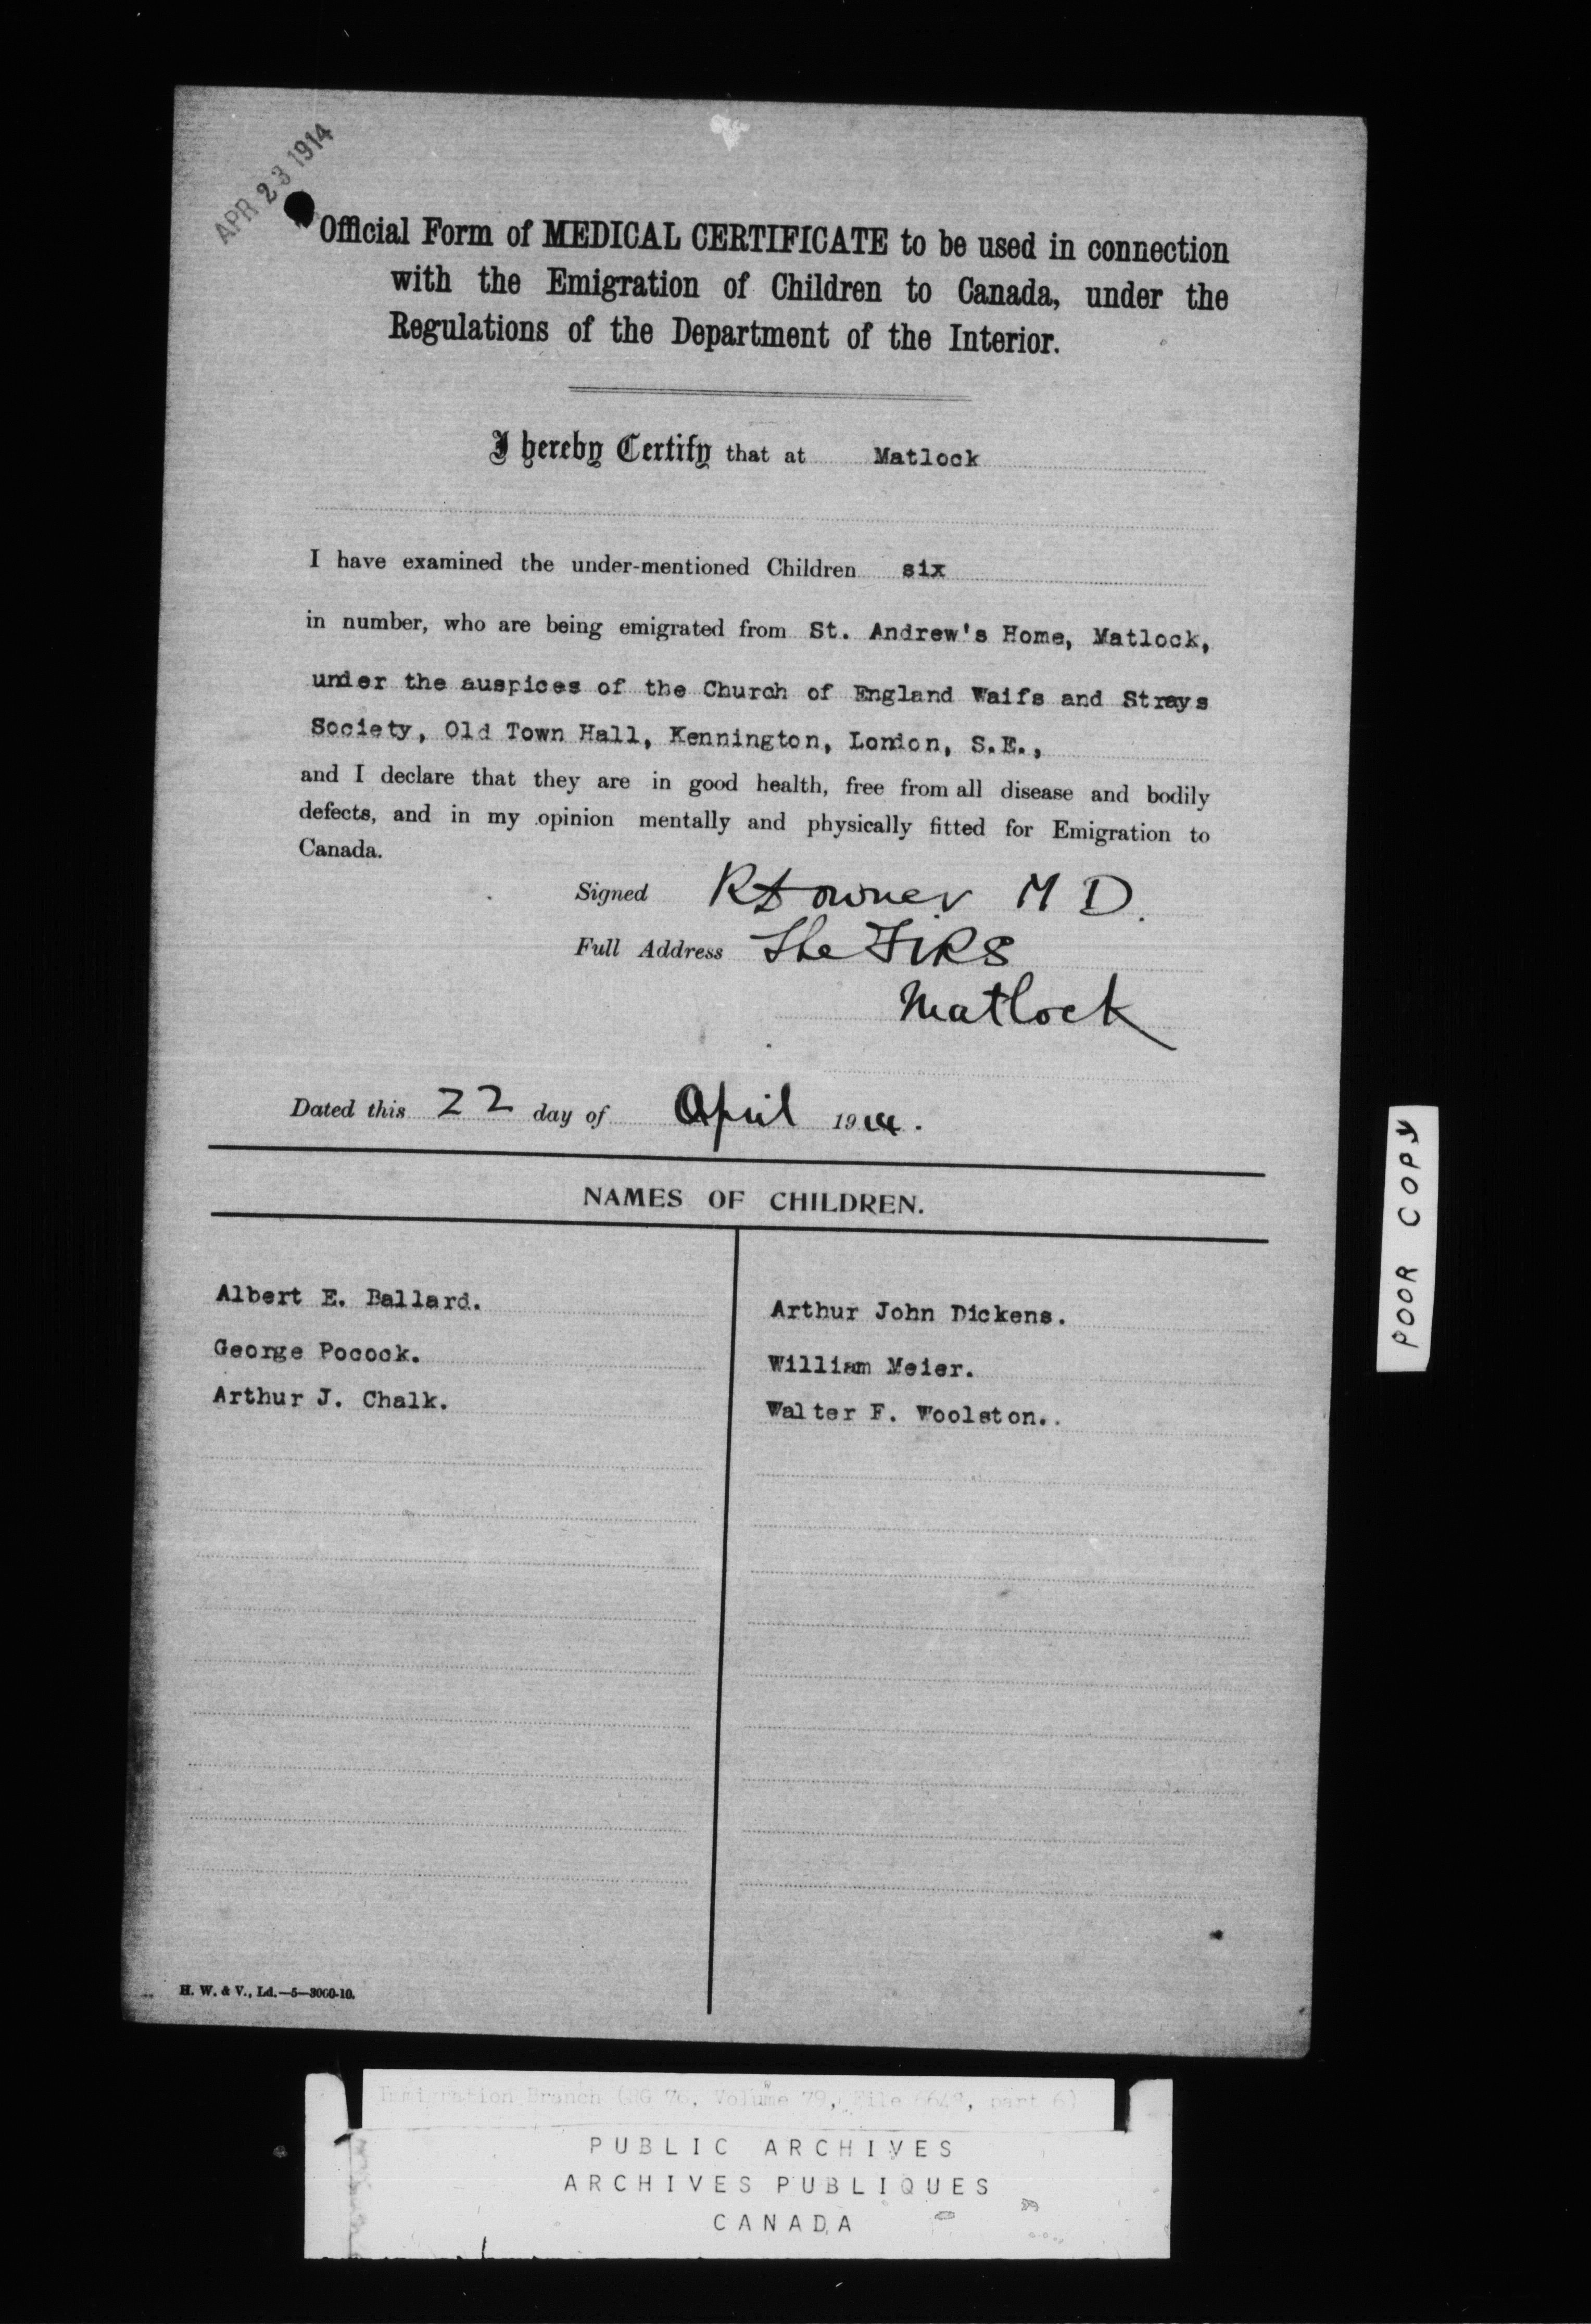 APR 23 1914
Official Form of MEDICAL CERTIFICATE to be used in connection
with the Emigration of Children to Canada, under the
Regulations of the Department of the Interior.
I hereby Certify that at Matlock
I have examined the under-mentioned Children six
in number, who are being emigrated from St. Andrew's Home, Matlock,
under the auspices of the Church of England Waifs and Strays
Society, Old Town Hall, Kennington, London, S.E.,
and I declare that they are in good health, free from all disease and bodily
defects, and in my opinion mentally and physically fitted for Emigration to
Canada.
Signed M D.
Full Address The FIRS
Matlock
Dated this 22 day of April 1914.
NAMES OF CHILDREN.
Albert E. Ballard.
Arthur John Dickens.
George Pocock.
William Meier.
Arthur J. Chalk.
Walter F. Woolston..
H. W. & V., Ld.—5—3000-10.
POOR COPY
Immigration Branch (RG 76, Volume 79, File 6648, part 6)
PUBLIC ARCHIVES
ARCHIVES PUBLIQUES
CANADA